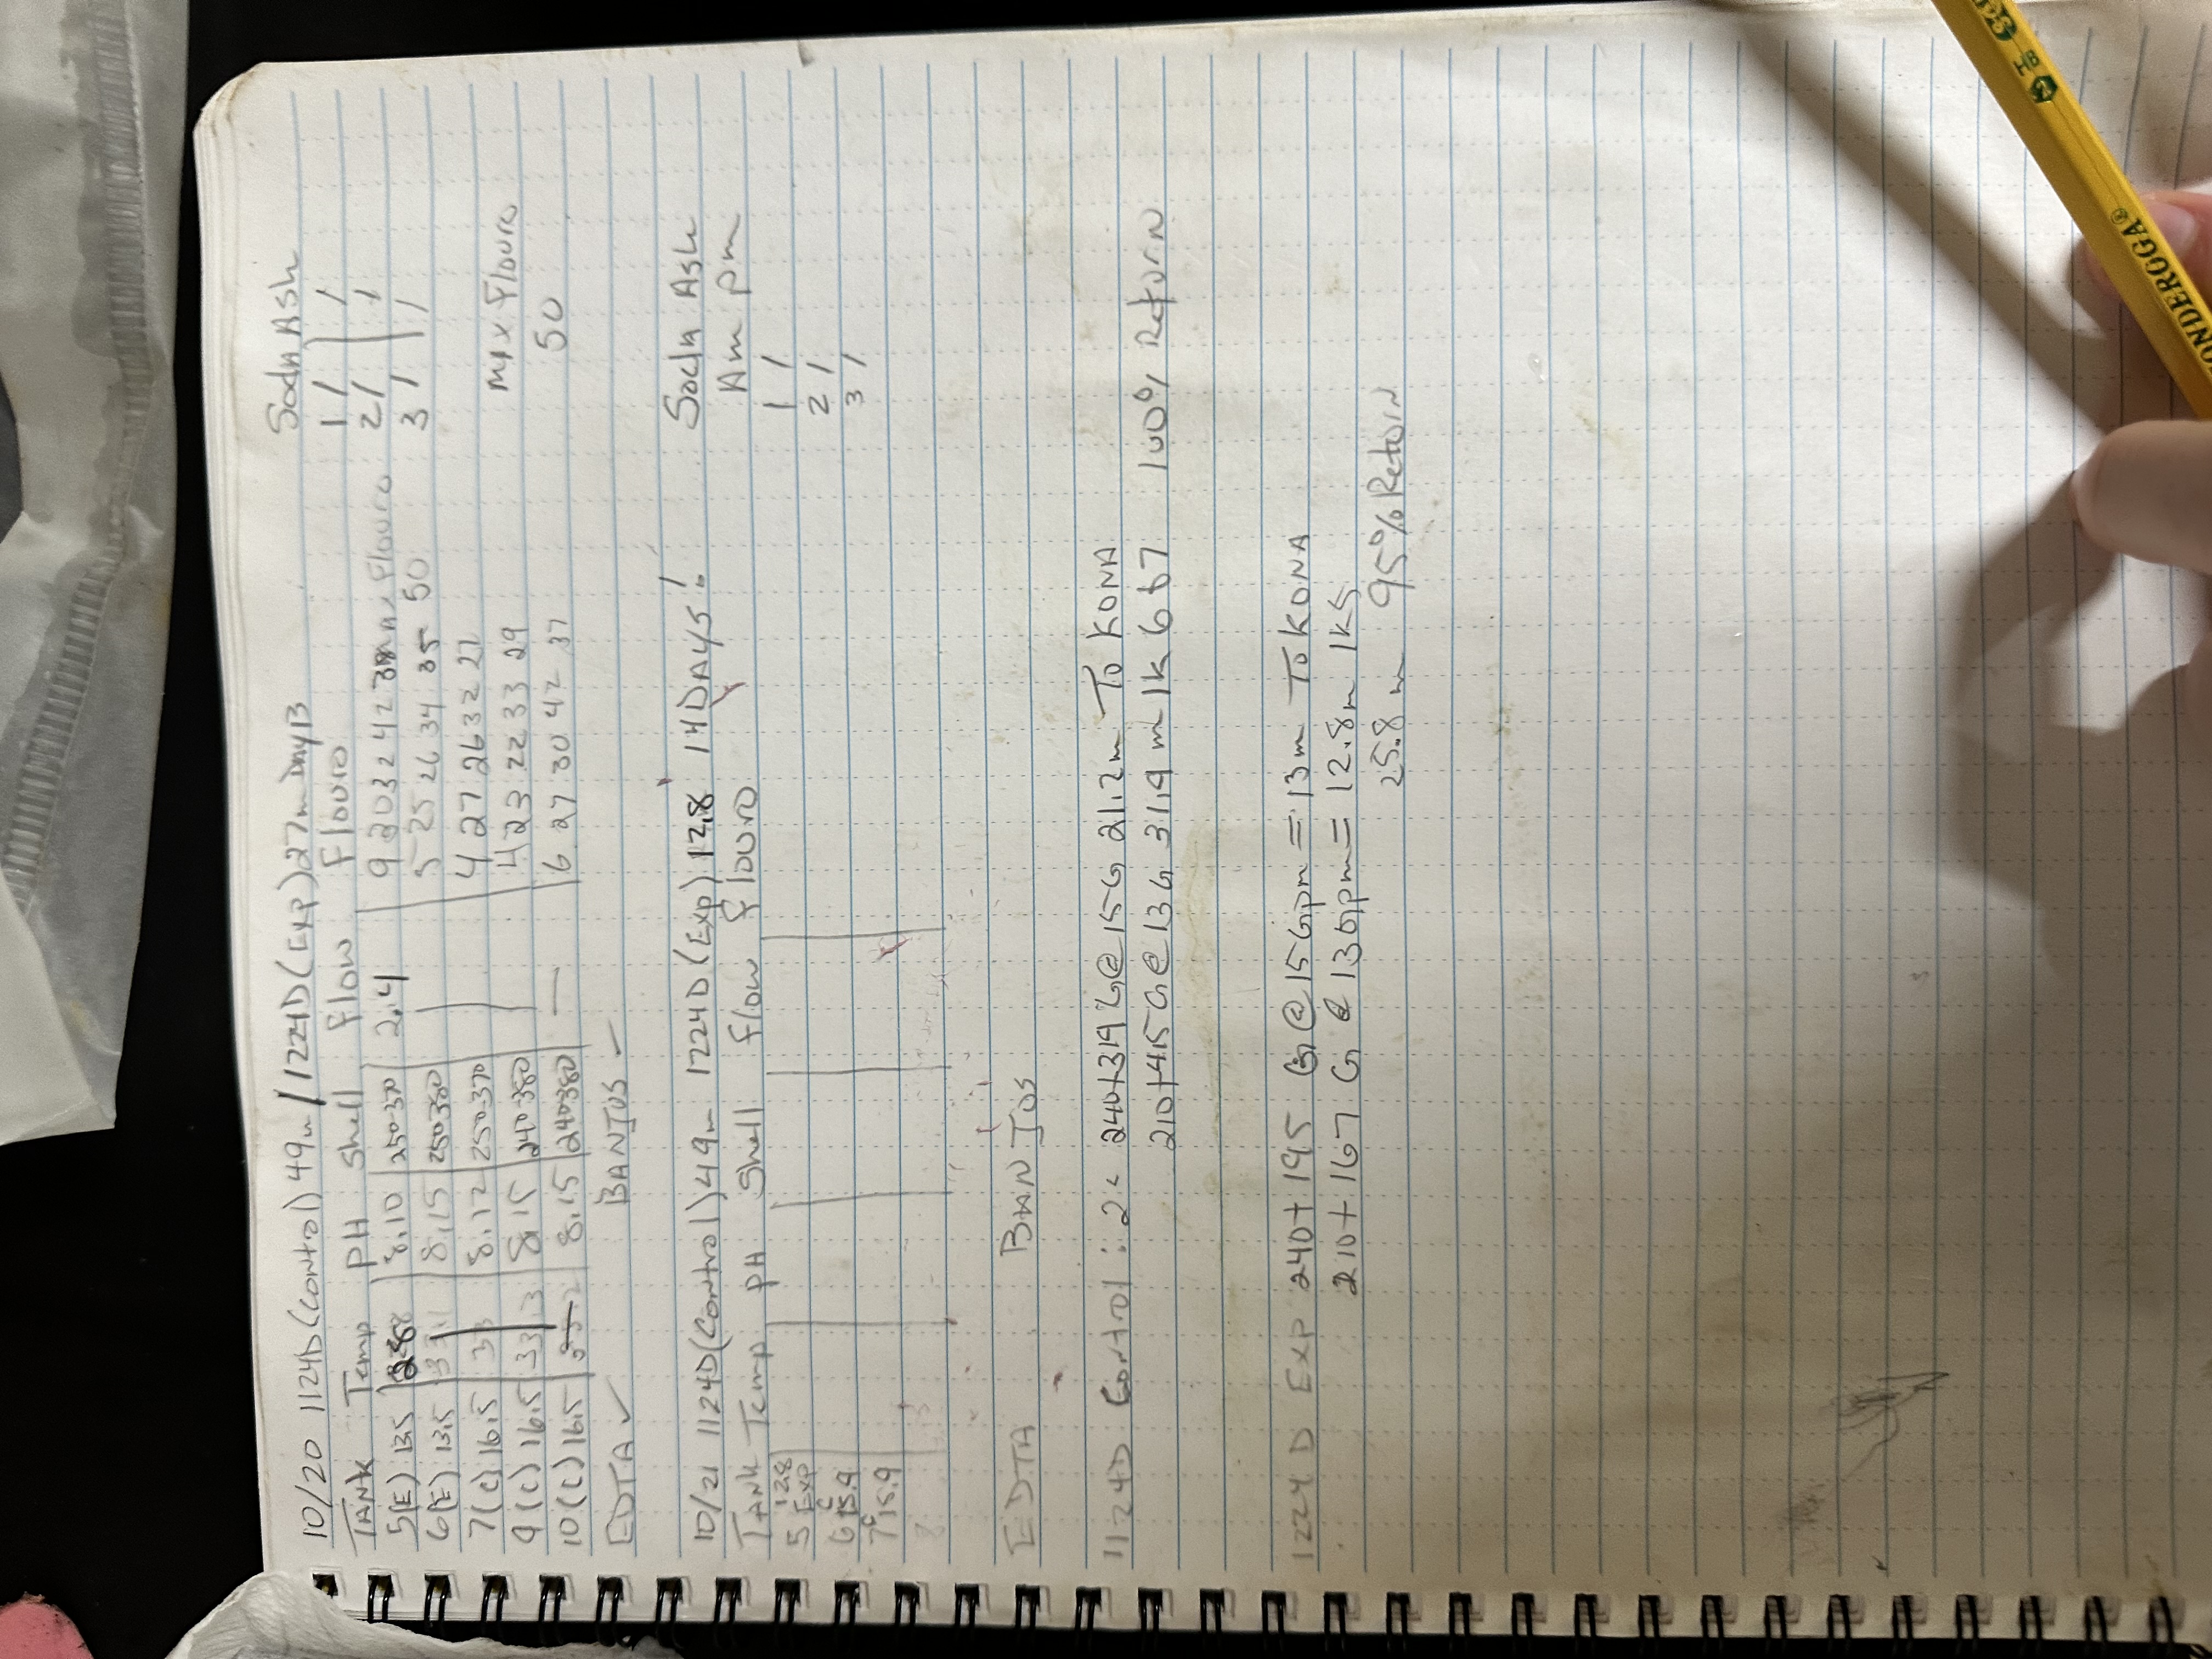 10/20 1124D (Control) 49m / 1224D (Exp) 27m Day 13
Soda Ash
TANK Temp PH Shell Flow Flouro
1 / /
2 / /
3 / /
5(E) 13.5 8.10 250-370 2.4 9 30 32 42 38 max Flouro
6(E) 13.5 8.15 250-380 5 25 26 34 35 50
7(C) 16.5 33 8.12 250-370 4 27 26 32 27
9(C) 16.5 33.3 8.15 240-380 4 23 22 33 29
10(C) 16.5 8.15 240-380 — 6 27 30 42 37
max Flouro
50
EDTA ✓ BANJOS –
10/21 1124D (Control) 49m 1224D (Exp) 12.8 14 DAYS!
Soda Ash
Am pm
TANK Temp PH Shell Flow Flouro
1 /
2 /
3 /
5 12.8 Exp
6 C 15.9
7 C 15.9
EDTA BANJOS
1124D Control: 2< 240+319 G@ 15G 21.2m To KONA
210+415 G@ 13G 31.9m 1k 6 & 7 100% Return
1224D Exp 240+195 G @ 15 Gpm = 13m To KONA
210+167 G @ 13 Gpm = 12.8m 1k5
25.8m 95% Return
HB
ONDEROGA®